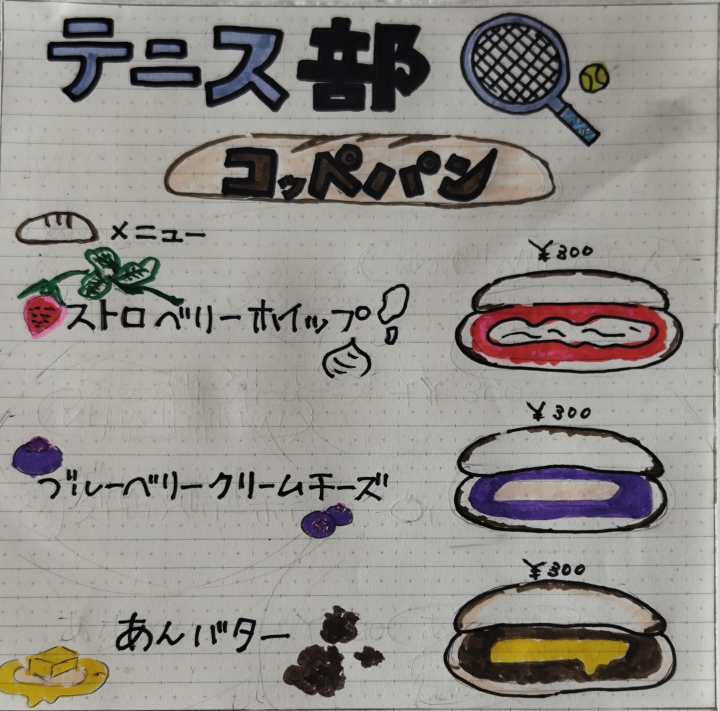 テニス部
コッペパン
メニュー
¥300
ストロベリーホイップ!
¥300
ブルーベリークリームチーズ
¥300
あんバター